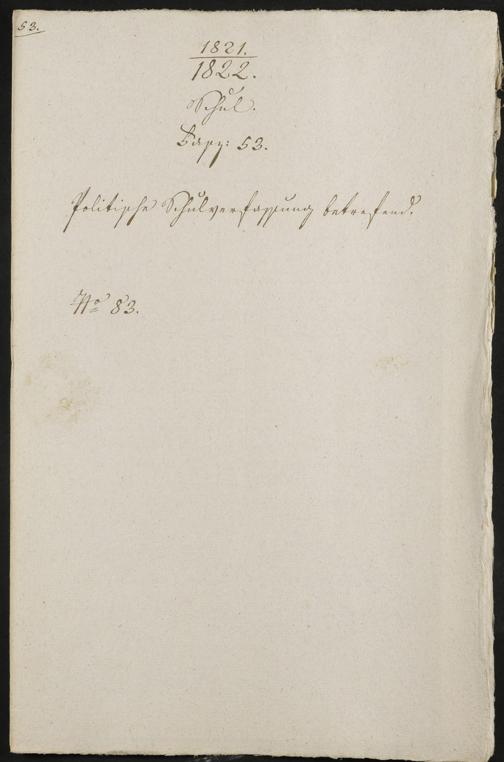 53.
1821.
1822.
Schul.
53.
Politische Schulverfassung betrefend.
No 83.